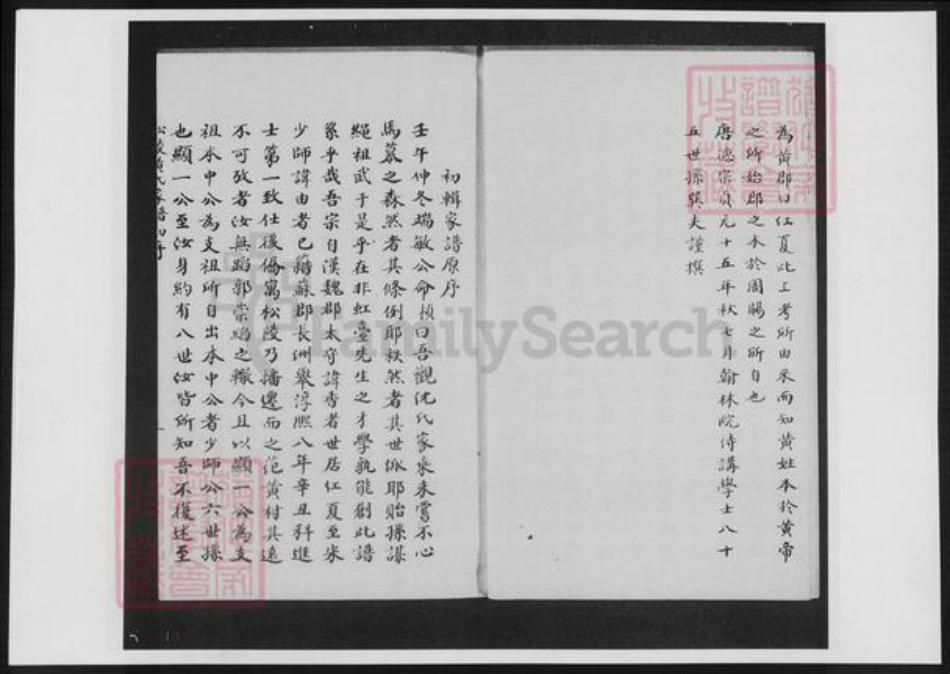 為黃郡曰江夏此上考所由來而知黃姓本於黃帝
之所始郡之本於國賜之所自也
唐德宗貞元十五年秋七月翰林院侍講學士八十
五世孫巽夫謹撰
初輯家譜原序
壬午仲冬瑞敏公命楨曰吾觀沈氏家乘未嘗不心
馬慕之森然者其條例耶秩然者其世派耶貽孫謀
繩祖武于是乎在非虹臺先生之才學孰能創此譜
系乎哉吾宗自漢魏郡太守諱香者世居江夏至宋
少師諱由者已籍蘇郡長洲舉淳熙八年辛丑科進
士第一致仕後僑寓松陵乃播遷而之范黃村其遠
不可攷者汝無蹈郭崇韜之轍今且以顯一公為支
祖本中公為支祖所自出本中公者少師公六世孫
也顯一公至汝身約有八世汝皆所知吾不復述至
松陵黃氏家譜
FamilySearch